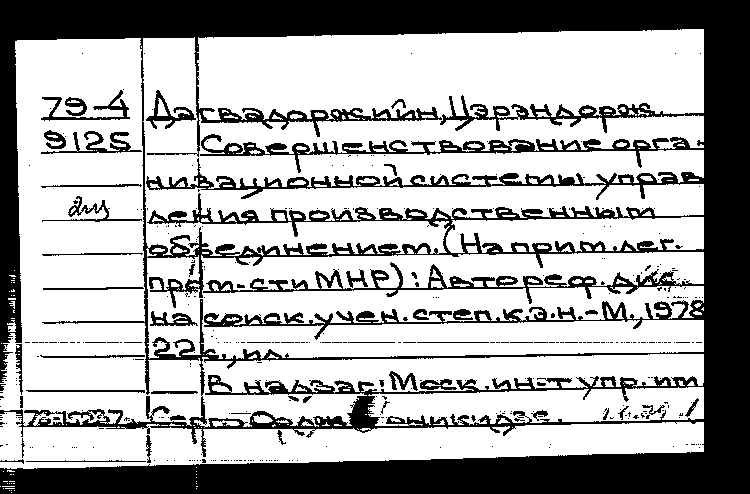 79-4 Дагвадоржийн, Цэрэндорж.
9125 Совершенствование орга-
низационной системы управ
ления производственным
объединением. (На прим. лег.
пром-сти МНР): Автореф. дис.
на соиск. учен. степ. к.э.н. - М., 1978
22 с., ил.
В надзаг: Моск. ин-т упр. им
Серго Орджоникидзе.